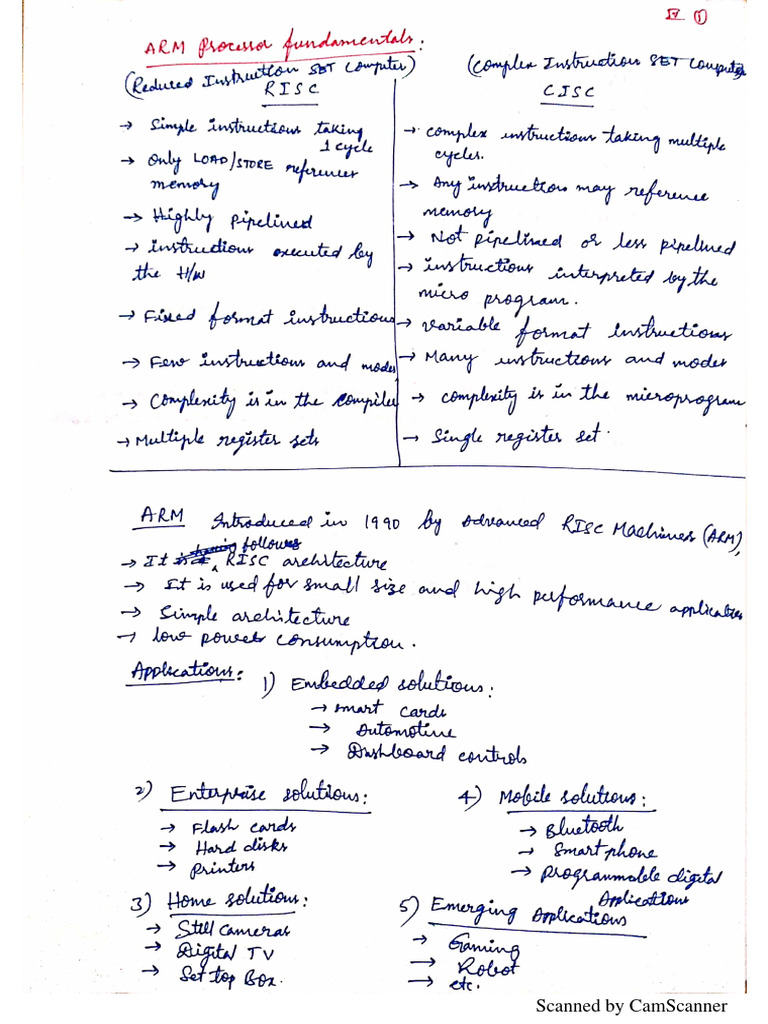 IV ①
ARM Processor fundamentals:
(Reduced Instruction SET Computer)
RISC
→ Simple instructions taking
1 cycle
→ Only LOAD/STORE references
memory
→ Highly pipelined
→ instructions executed by
the H/W
→ Fixed format instructions
→ Few instructions and modes
→ Complexity is in the compiler
→ Multiple register sets
(Complex Instruction SET Computer)
CISC
→ complex instructions taking multiple
cycles.
→ Any instruction may reference
memory
→ Not pipelined or less pipelined
→ instructions interpreted by the
micro program.
→ variable format instructions
→ Many instructions and modes
→ complexity is in the microprogram
→ Single register set.
ARM Introduced in 1990 by Advanced RISC Machines (ARM),
→ It follows RISC architecture
→ It is used for small size and high performance applications
→ Simple architecture
→ low power consumption.
Applications:
1) Embedded solutions:
→ smart cards
→ Automotine
→ Dashboard controls
2) Enterprise solutions:
→ Flash cards
→ Hard disks
→ printers
3) Home solutions:
→ Still cameras
→ Digital TV
→ Set top Box.
4) Mobile solutions:
→ Bluetooth
→ Smart phone
→ programmable digital
Applications
5) Emerging Applications
→ Gaming
→ Robot
→ etc.
Scanned by CamScanner